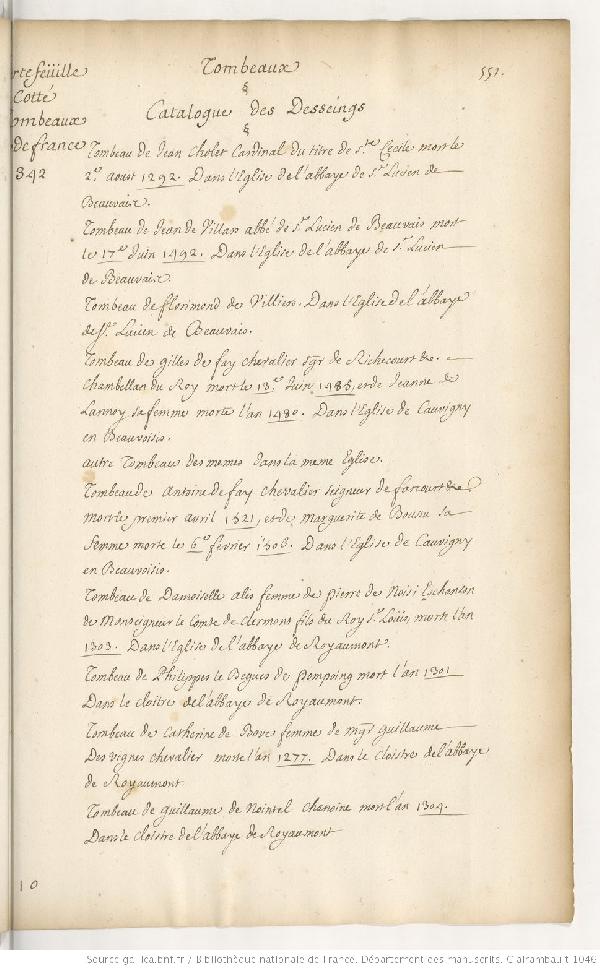 Tombeaux
551.
rtefeüille
Cotté
ombeaux
de france
342
Catalogue des Desseings
Tombeau de Jean Cholet Cardinal du titre de s.te Cecile mort le
2.e aoust 1292. Dans l'Eglise de l'abbaye de s.t Lucien de
Beauvaix.
Tombeau de Jean de Villars abbé de s.t Lucien de Beauvais mort
le 17.e Juin 1492. Dans l'Eglise de l'abbaye de s.t Lucien
de Beauvaix.
Tombeau de florimond de Villiers. Dans l'Eglise de l'abbaye
de s.t Lucien de Beauvais.
Tombeau de gilles de fay chevalier sgr de Richecourt &c.
Chambellan du Roy mort le 18.e Juin 1485, et de Jeanne de
Lannoy sa femme morte l'an 1480. Dans l'Eglise de Cauvigny
en Beauvoisis.
autre Tombeau des memes dans la meme Eglise.
Tombeau de Antoine de fay chevalier seigneur de farcourt &c
mort le premier avril 1521, et de Marguerite de Bossu sa
femme morte le 6.e fevrier Dans l'Eglise de Cauvigny
en Beauvoisis.
Tombeau de Damoiselle alis femme de pierre de Noisi Eschanson
de Monseigneur le Comte de Clermont fils du Roy s.t Loüis, morte l'an
1303. Dans l'Eglise de l'abbaye de Royaumont.
Tombeau de Philippes le Begues de pompoing mort l'an 1301
Dans le cloitre de l'abbaye de Royaumont.
Tombeau de Catherine de Bove femme de mgr guillaume
Des vignes chevalier morte l'an 1277. Dans le cloistre de l'abbaye
de Royaumont
Tombeau de guillaume de Nointel chanoine mort l'an 1304.
Dans le cloistre de l'abbaye de Royaumont
10
Source gallica.bnf.fr / Bibliothèque nationale de France. Département des manuscrits. Clairambault 1046